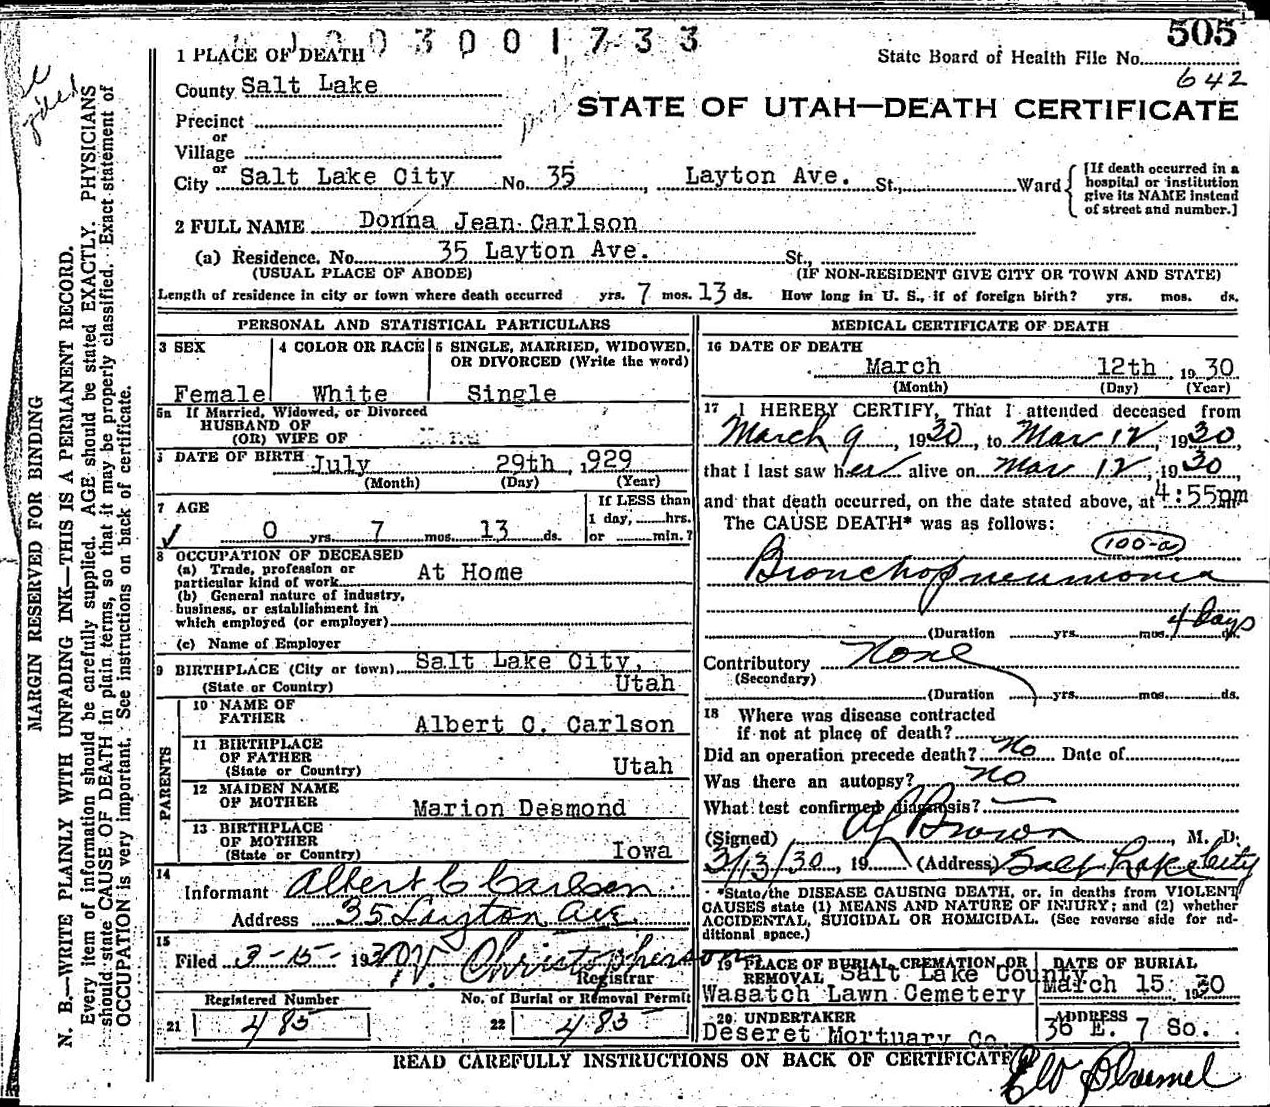 1003001733
505
1 PLACE OF DEATH
State Board of Health File No.
642
County Salt Lake
STATE OF UTAH—DEATH CERTIFICATE
Precinct
or
Village
or
City Salt Lake City No. 35, Layton Ave. St., Ward
[If death occurred in a
hospital or institution
give its NAME instead
of street and number.]
2 FULL NAME Donna Jean Carlson
(a) Residence. No. 35 Layton Ave. St.,
(USUAL PLACE OF ABODE) (IF NON-RESIDENT GIVE CITY OR TOWN AND STATE)
Length of residence in city or town where death occurred yrs. 7 mos. 13 ds. How long in U. S., if of foreign birth? yrs. mos. ds.
PERSONAL AND STATISTICAL PARTICULARS
3 SEX
Female
4 COLOR OR RACE
White
5 SINGLE, MARRIED, WIDOWED,
OR DIVORCED (Write the word)
Single
5a If Married, Widowed, or Divorced
HUSBAND OF
(OR) WIFE OF
DATE OF BIRTH July 29th, 1929
(Month) (Day) (Year)
7 AGE
0 yrs. 7 mos. 13 ds.
If LESS than
1 day, hrs.
or min.?
8 OCCUPATION OF DECEASED
(a) Trade, profession or
particular kind of work At Home
(b) General nature of industry,
business, or establishment in
which employed (or employer)
(c) Name of Employer
9 BIRTHPLACE (City or town) Salt Lake City,
(State or Country) Utah
PARENTS
10 NAME OF
FATHER Albert C. Carlson
11 BIRTHPLACE
OF FATHER
(State or Country) Utah
12 MAIDEN NAME
OF MOTHER Marion Desmond
13 BIRTHPLACE
OF MOTHER
(State or Country) Iowa
14
Informant Albert C Carlson
Address 35 Layton Ave.
15
Filed 3-15- 1930 W. Christopherson
Registrar
Registered Number
21 485
No. of Burial or Removal Permit
22 485
MEDICAL CERTIFICATE OF DEATH
16 DATE OF DEATH
March 12th, 1930
(Month) (Day) (Year)
17 I HEREBY CERTIFY, That I attended deceased from
March 9, 1930, to Mar 12, 1930,
that I last saw her alive on Mar 12, 1930
and that death occurred, on the date stated above, at 4:55pm
The CAUSE DEATH* was as follows:
100-a
Bronchopneumonia
(Duration yrs. mos. 4 Days
Contributory None
(Secondary)
(Duration yrs. mos. ds.
18 Where was disease contracted
if not at place of death?
Did an operation precede death? No Date of
Was there an autopsy? No
What test confirmed diagnosis? —
(Signed) Brown, M. D.
3/13/30, 19 (Address) Salt Lake City
*State the DISEASE CAUSING DEATH, or, in deaths from VIOLENT
CAUSES state (1) MEANS AND NATURE OF INJURY; and (2) whether
ACCIDENTAL, SUICIDAL OR HOMICIDAL. (See reverse side for ad-
ditional space.)
19 PLACE OF BURIAL, CREMATION, OR
REMOVAL Salt Lake County
Wasatch Lawn Cemetery
DATE OF BURIAL
March 15 1930
20 UNDERTAKER
Deseret Mortuary Co.
ADDRESS
36 E. 7 So.
READ CAREFULLY INSTRUCTIONS ON BACK OF CERTIFICATE
MARGIN RESERVED FOR BINDING
N. B.—WRITE PLAINLY WITH UNFADING INK—THIS IS A PERMANENT RECORD.
Every item of information should be carefully supplied. AGE should be stated EXACTLY. PHYSICIANS
should state CAUSE OF DEATH in plain terms, so that it may be properly classified. Exact statement of
OCCUPATION is very important. See instructions on back of certificate.